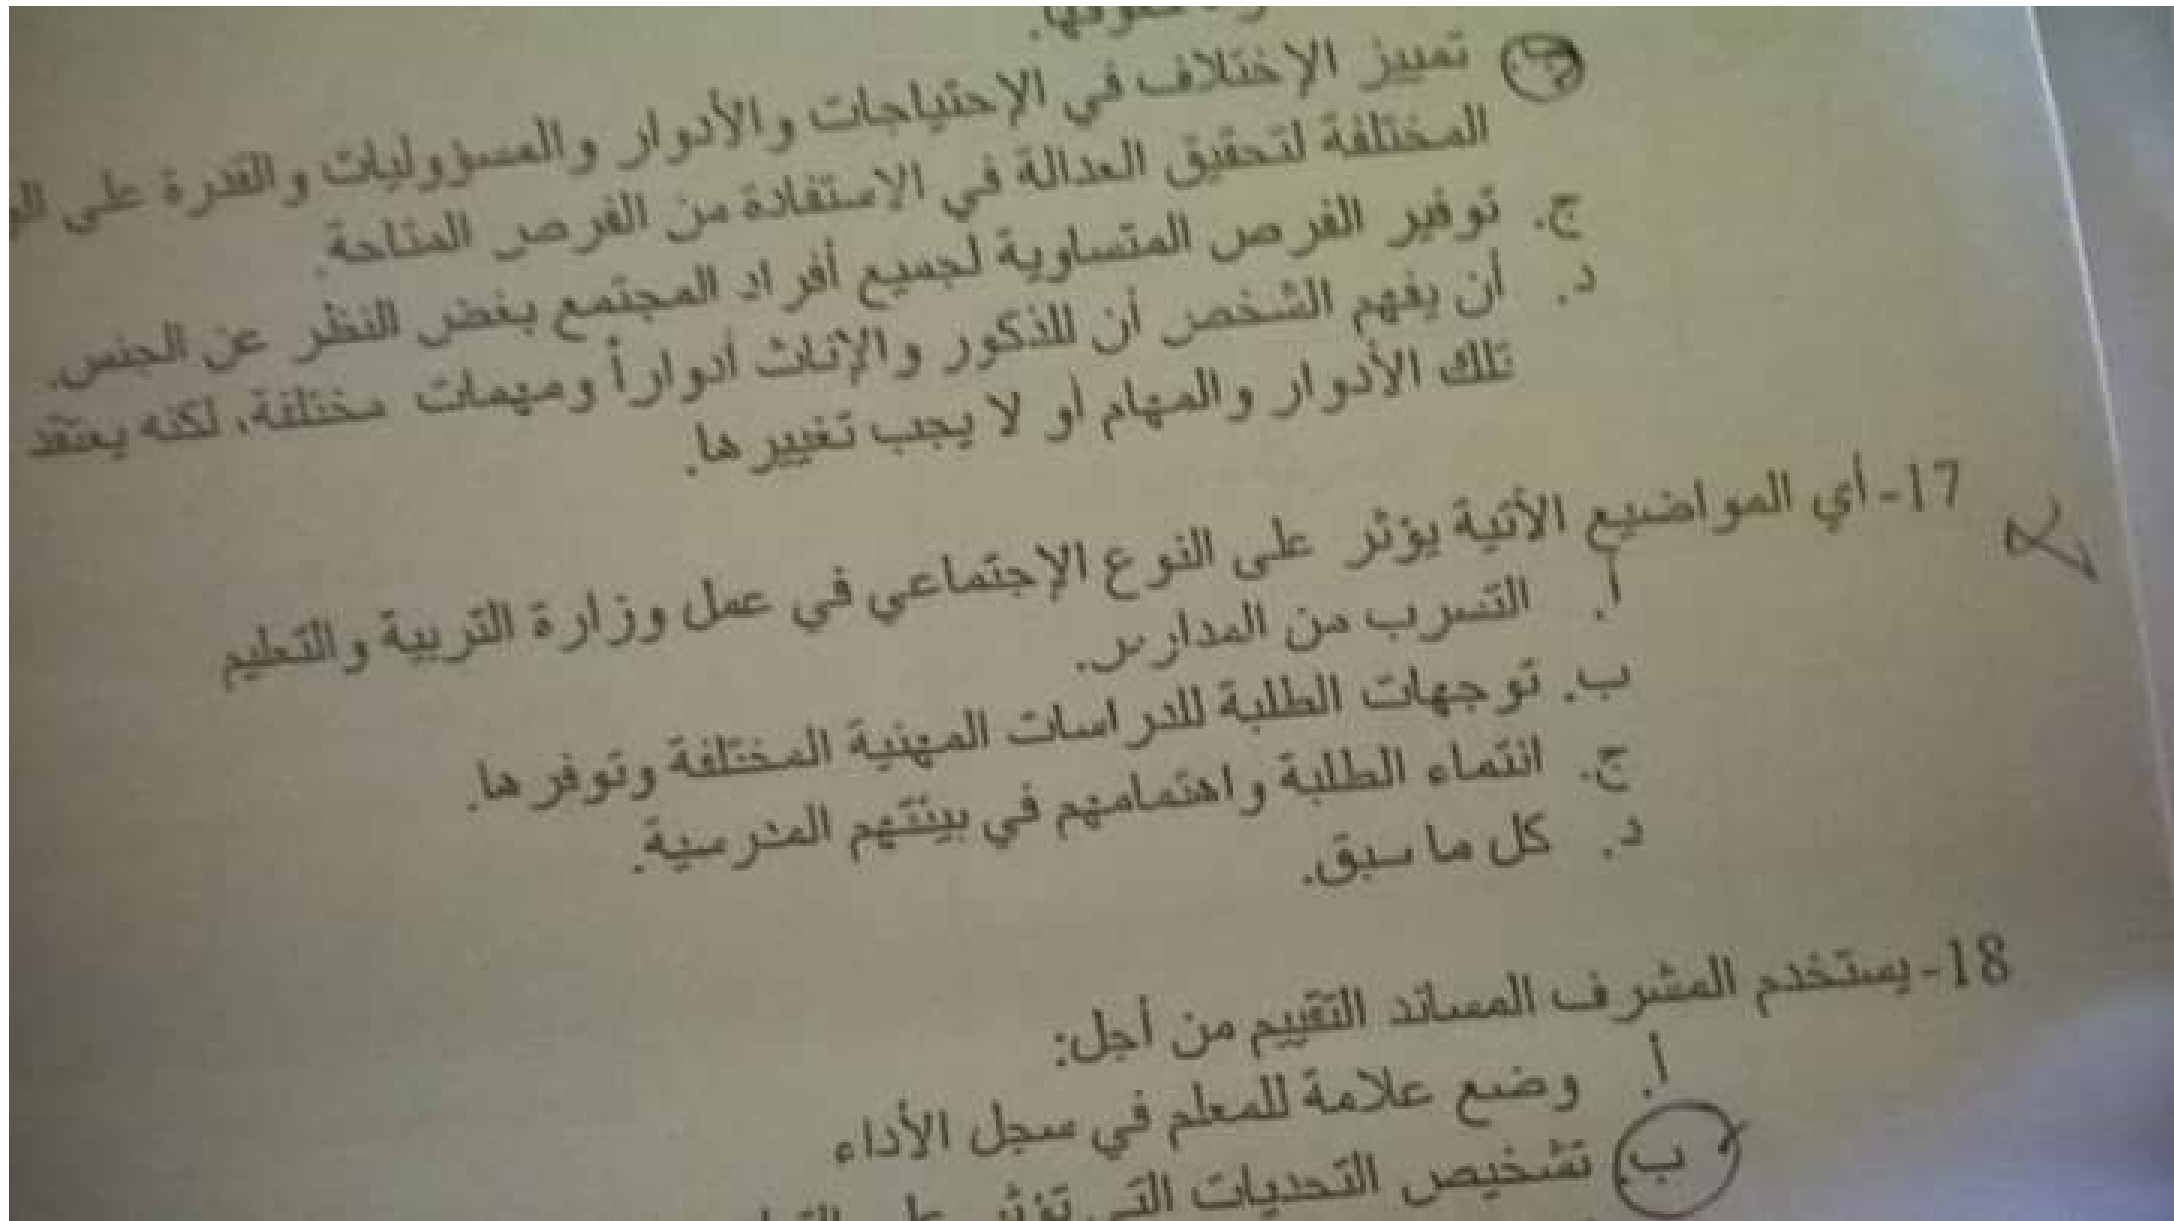 ب. تمييز الإختلاف في الإحتياجات والأدوار والمسؤوليات والقدرة على
المختلفة لتحقيق العدالة في الاستفادة من الفرص المتاحة.
ج. توفير الفرص المتساوية لجميع أفراد المجتمع بغض النظر عن الجنس.
د. أن يفهم الشخص أن للذكور والإناث أدواراً ومهمات مختلفة، لكنه يعتقد
تلك الأدوار والمهام أو لا يجب تغييرها.
17-أي المواضيع الأتية يؤثر على النوع الإجتماعي في عمل وزارة التربية والتعليم
أ. التسرب من المدارس.
ب. توجهات الطلبة للدراسات المهنية المختلفة وتوفرها.
ج. انتماء الطلبة واهتمامهم في بيئتهم المدرسية.
د. كل ما سبق.
18-يستخدم المشرف المساند التقييم من أجل:
أ. وضع علامة للمعلم في سجل الأداء
ب. تشخيص التحديات التي تؤثر على